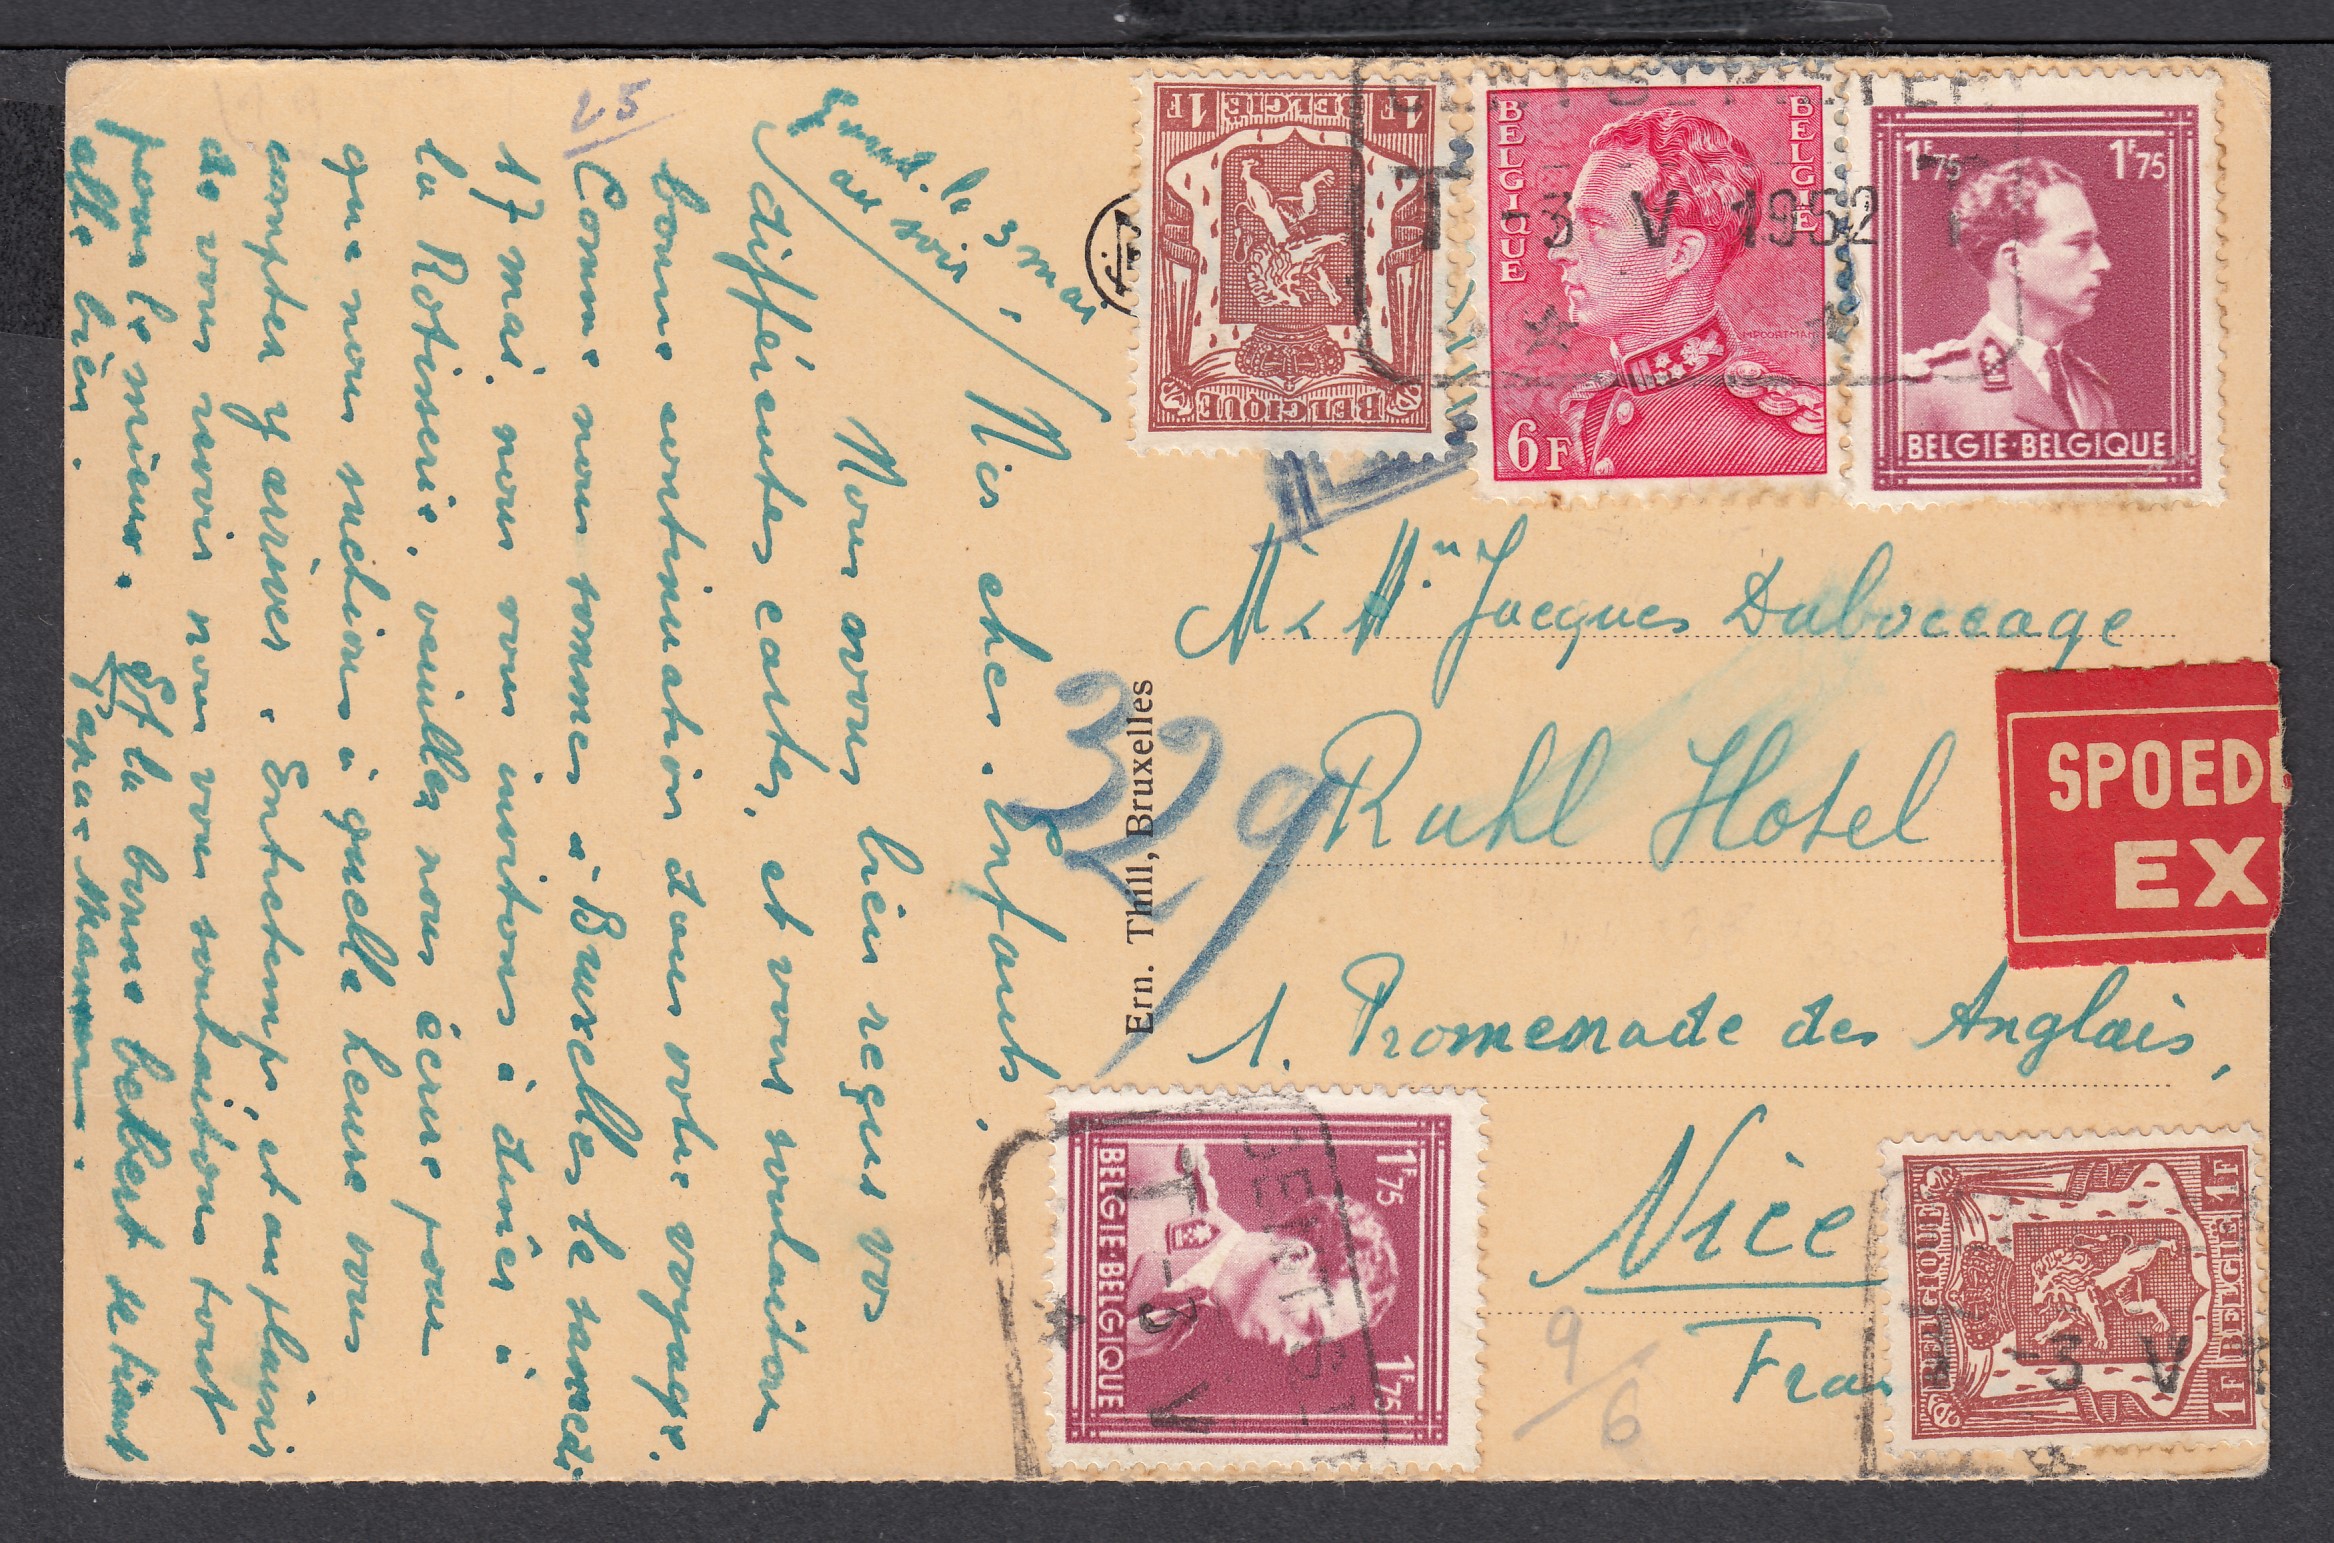 Gand, le 3 mai
au soir
Mes chers Enfants.
Nous avons bien reçus vos
différentes cartes, et vous souhaitons
bonne continuation dans votre voyage.
Comme nous sommes à Bruxelles le samedi
17 mai, nous vous invitons à diner à
la Rotisserie, veuillez nous écrire pour
que nous mettions à quelle heure vous
comptez y arriver. Entretemps, et au plaisir
de vous revoir nous vous souhaitons tout
pour le mieux. Et la bonne se tient
alle bien. Papa - Maman.
25
32
9
Ern. Thill, Bruxelles
1F BELGIE 1F
BELGIQUE
BELGIQUE BELGIE
6F
1F75 1F75
BELGIE·BELGIQUE
GENT ST PIETER
T -3 V 1952 T
Mr & Mme Jacques Duboccage
Ruhl Hotel
1. Promenade des Anglais,
Nice
Fra
SPOED
EX
1F75 1F75
BELGIE·BELGIQUE
T -3 V
BELGIQUE
1F BELGIE 1F
-3 V
9/6